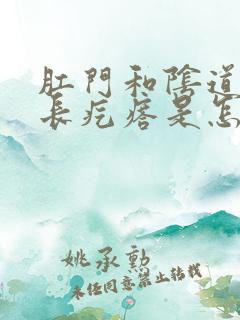 肛門和陰道
長疙瘩是怎
姚承勳
未经同意禁止转载